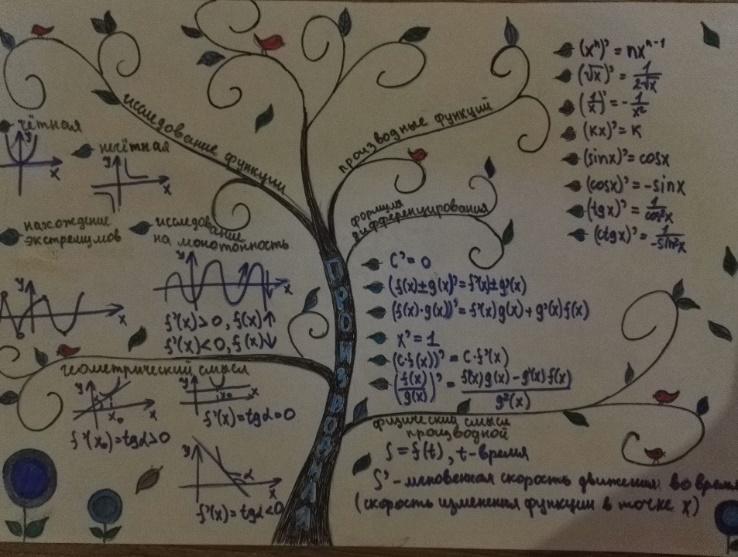 исследование функции
чётная
нечётная
y
x
y
x
нахождение
экстремумов
исследование
на монотонность
y
x
y
x
f'(x)>0, f(x)↑
f'(x)<0, f(x)↓
геометрический смысл
y
x₀
x
f'(x₀)=tgα>0
y
x₀
x
f'(x)=tgα=0
y
α
x
f'(x)=tgα<0
ПРОИЗВОДНАЯ
производные функций
(xⁿ)' = nxⁿ⁻¹
(√x)' = 1/2√x
(1/x)' = -1/x²
(kx)' = k
(sinx)' = cosx
(cosx)' = -sinx
(tgx)' = 1/cos²x
(ctgx)' = 1/-sin²x
формула
дифференцирования
C' = 0
(f(x)±g(x))' = f'(x)±g'(x)
(f(x)·g(x))' = f'(x)g(x) + g'(x)f(x)
x' = 1
(c·f(x))' = c·f'(x)
(f(x)/g(x))' = f'(x)g(x) - g'(x)f(x)/g²(x)
физический смысл
производной
S = f(t), t - время
S' - мгновенная скорость движения во время
(скорость изменения функции в точке x)